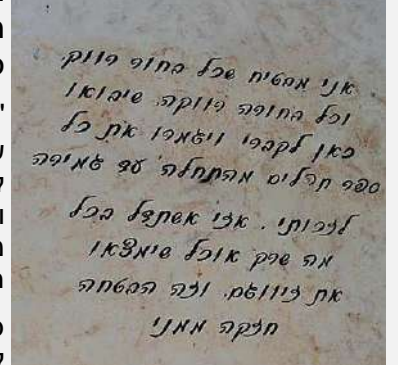 אני מבטיח שכל בחור רווק
וכל בחורה רווקה, שיבואו
כאן לקברי ויגמרו את כל
ספר תהלים מהתחלה עד גמירה
לזכותי, אזי אשתדל בכל
מה שרק אוכל שימצאו
את זיווגם. וזה הבטחה
חזקה ממני